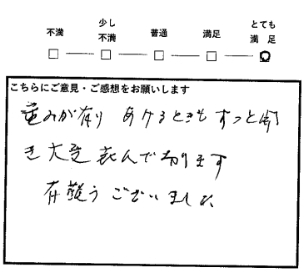 不満 少し不満 普通 満足 とても満足
こちらにご意見・ご感想をお願いします
重みが有り あけるときもすっと開
き大変喜んで居ります
有難うございました